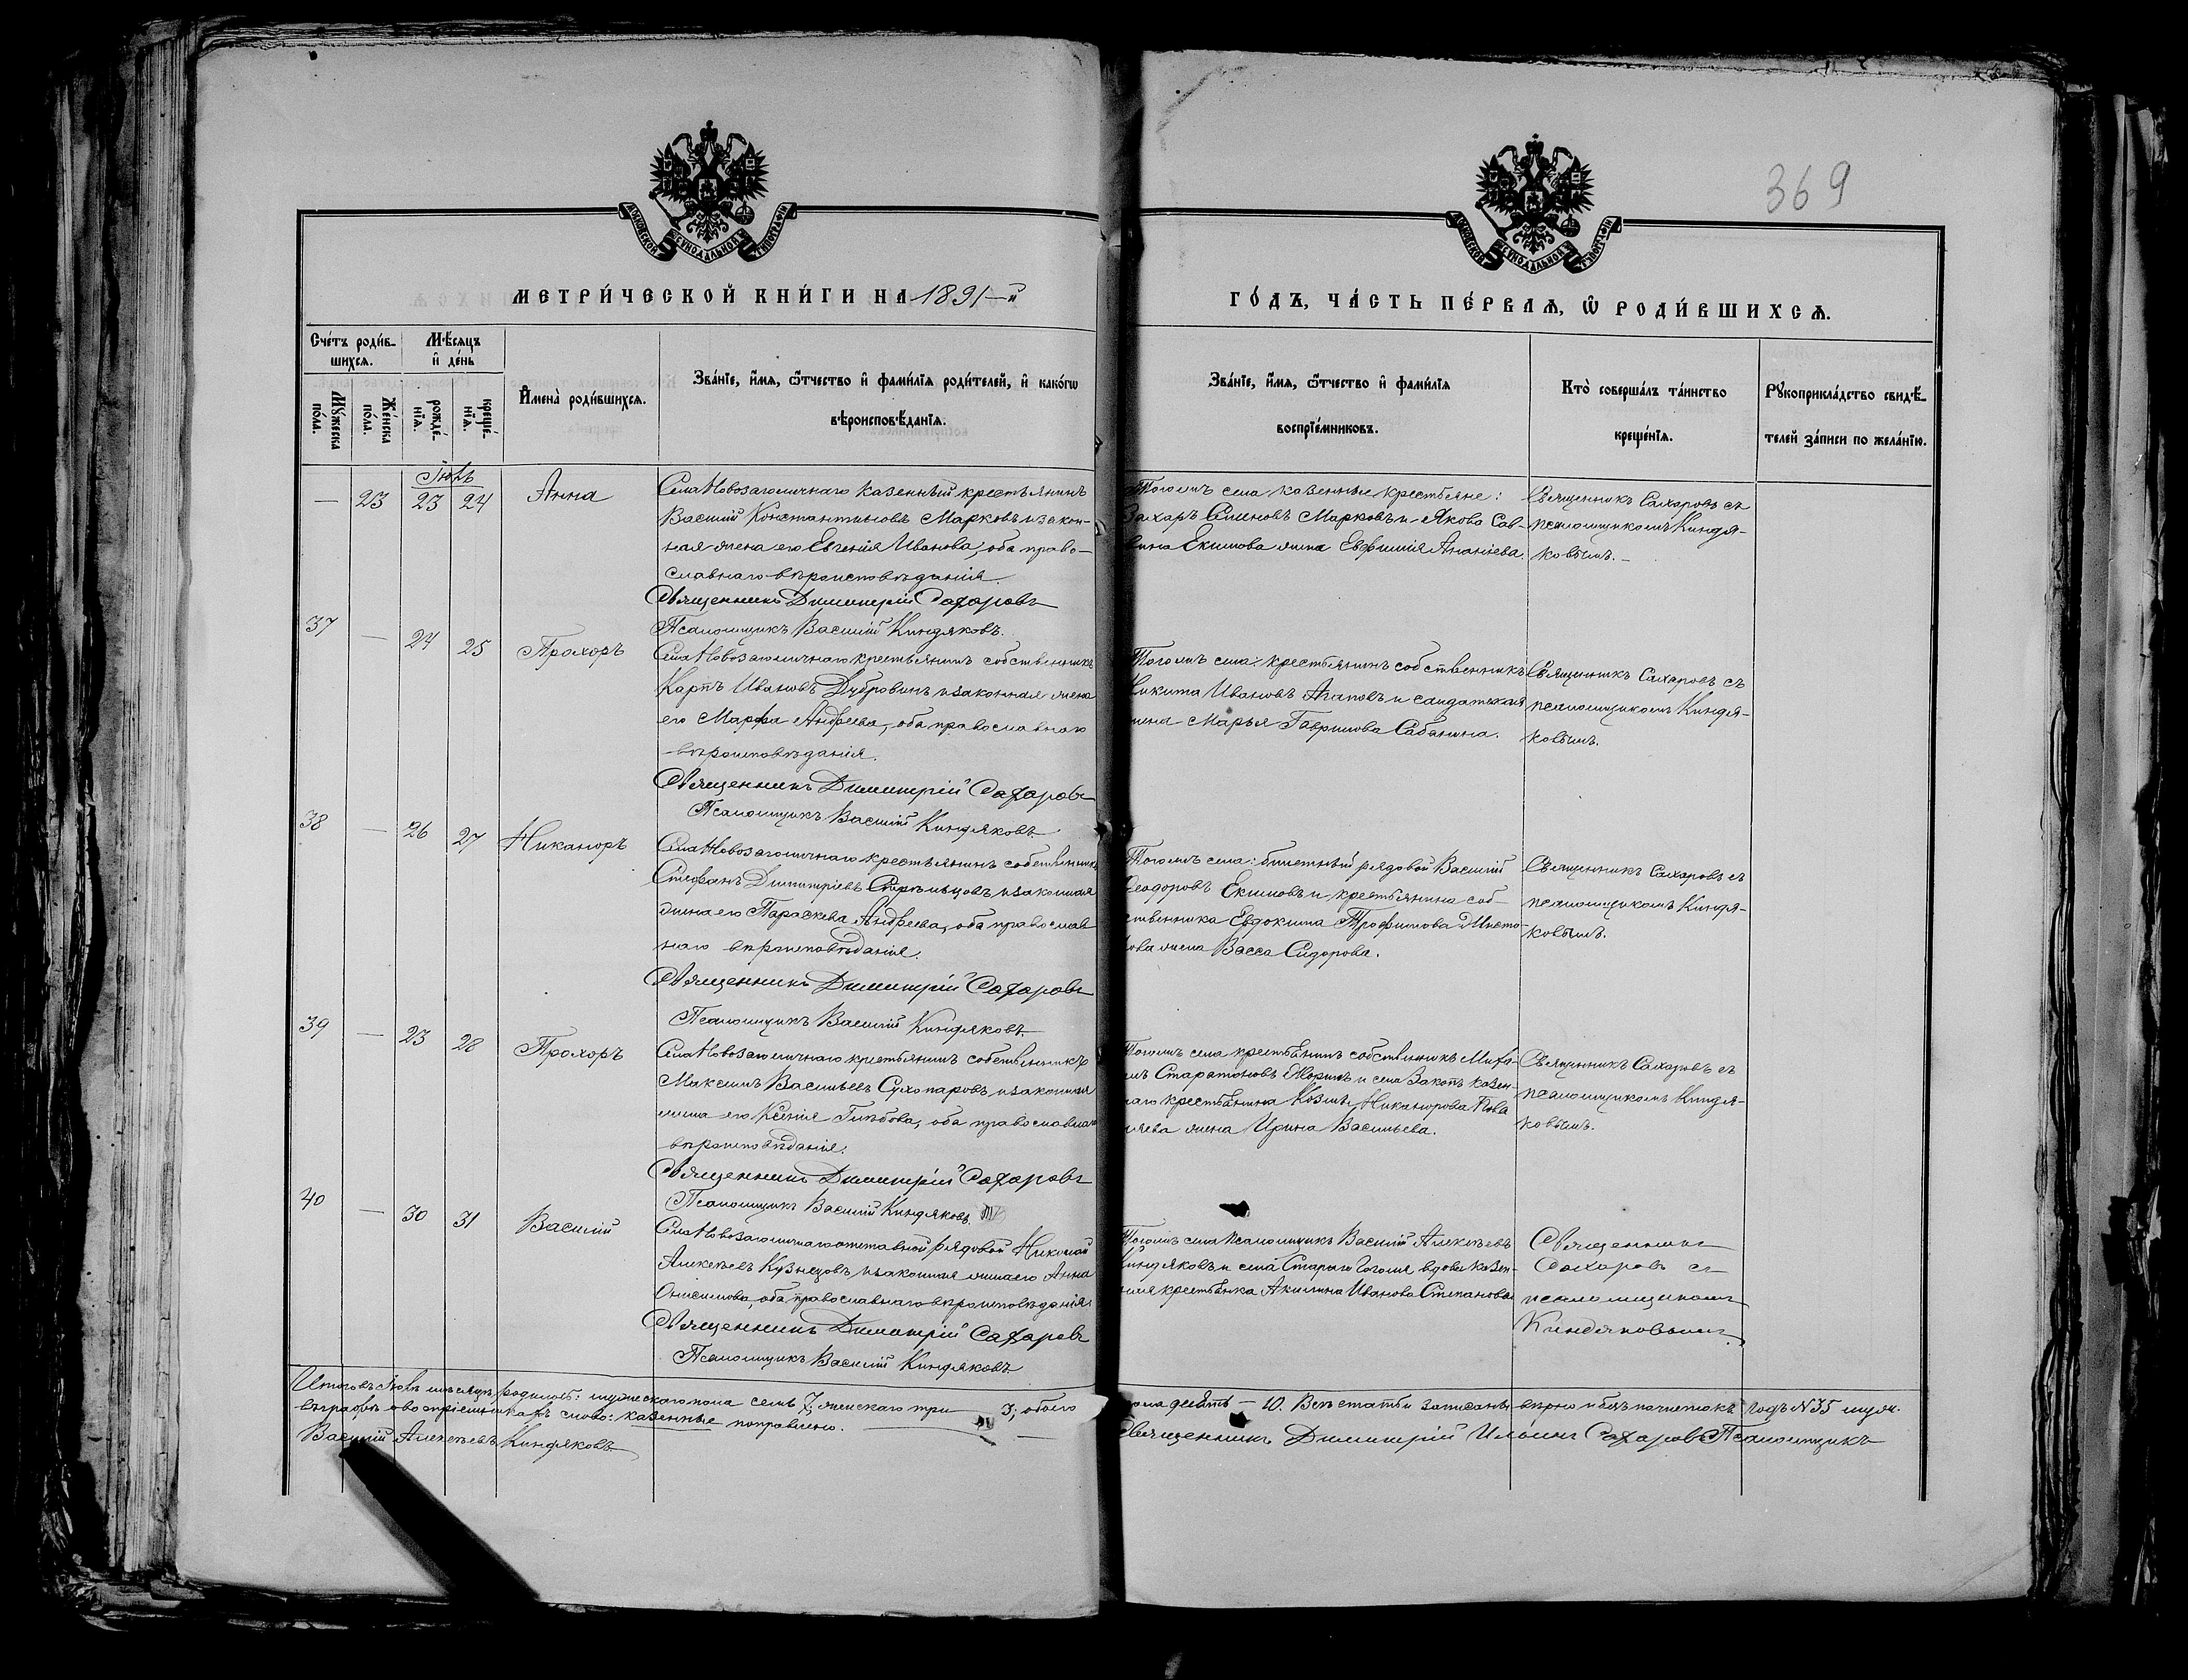 369
МОСКОВСКОЙ СѴНОДАЛЬНОЙ ТИПОГРАФІИ
МОСКОВСКОЙ СѴНОДАЛЬНОЙ ТИПОГРАФІИ
МЕТРИ́ЧЕСКОЙ КНИ́ГИ НА 1891-й
ГО́ДЪ, ЧА́СТЬ ПЕ́РВАѦ, Ѡ҆ РОДИ́ВШИХСѦ.
Сче́тъ роди́в-
шихсѧ.
Мѣ́сѧцъ
и҆ де́нь
Мꙋ́жеска
по́ла.
Же́нска
по́ла.
рожде́-
нїѧ.
креще́-
нїѧ.
И҆мена̀ роди́вшихсѧ.
Зва́нїе, и҆́мѧ, ѻ҆́тчество и҆ фами́лїѧ роди́телей, и҆ како́гѡ
вѣроисповѣ́данїѧ.
Зва́нїе, и҆́мѧ, ѻ҆́тчество и҆ фами́лїѧ
воспрїе́мниковъ.
Кто̀ соверша́лъ та́инство
креще́нїѧ.
Рꙋкоприкла́дство свидѣ́-
телей за́писи по жела́нїю.
Іюль
— 23 23 24 Анна
Села Новозаголичнаго казенный крестьянинъ
Василій Константиновъ Марковъ и закон-
ная жена его Евгенія Иванова, оба право-
славнаго вѣроисповѣданія.
Священникъ Димитрій Сахаровъ
Псаломщикъ Василій Киндяковъ.
Тогожъ села казенные крестьяне:
Захаръ Семеновъ Марковъ и Якова Сав-
вина Екимова жена Евфимія Ананіева.
Священникъ Сахаровъ съ
псаломщикомъ Киндя-
ковымъ.
37 — 24 25 Прохоръ
Села Новозаголичнаго крестьянинъ собственникъ
Карпъ Ивановъ Дубровинъ и законная жена
его Марфа Андреева, оба православнаго
вѣроисповѣданія.
Священникъ Димитрій Сахаровъ
Псаломщикъ Василій Киндяковъ.
Тогожъ села: крестьянинъ собственникъ
Никита Ивановъ Агаповъ и солдатская
жена Марья Гаврилова Сабанина.
Священникъ Сахаровъ съ
псаломщикомъ Киндя-
ковымъ.
38 — 26 27 Никаноръ
Села Новозаголичнаго крестьянинъ собственникъ
Стефанъ Димитріевъ Стрѣльцовъ и законная
жена его Параскева Андреева, оба православ
наго вѣроисповѣданія.
Священникъ Димитрій Сахаровъ
Псаломщикъ Василій Киндяковъ.
Тогожъ села: билетный рядовой Василій
Ѳеодоровъ Екимовъ и крестьянина соб-
ственника Евдокима Трофимова
жена Васса Сидорова.
Священникъ Сахаровъ съ
псаломщикомъ Киндя-
ковымъ.
39 — 23 28 Прохоръ
Села Новозаголичнаго крестьянинъ собственникъ
Максимъ Васильевъ Сухопаровъ и законная
жена его Ксенія Глѣбова, оба православнаго
вѣроисповѣданія.
Священникъ Димитрій Сахаровъ
Псаломщикъ Василій Киндяковъ.
Тогожъ села крестьянинъ собственникъ Миха-
илъ Старатоновъ и села казен-
наго крестьянина Козьмы Никанорова
жена Ирина Васильева.
Священникъ Сахаровъ съ
псаломщикомъ Киндя-
ковымъ.
40 — 30 31 Василій
Села Новозаголичнаго отставной рядовой Николай
Алексѣевъ Кузнецовъ и законная жена его Анна
Онисимова, оба православнаго вѣроисповѣданія.
Священникъ Димитрій Сахаровъ
Псаломщикъ Василій Киндяковъ.
Тогожъ села псаломщикъ Василій Алексѣевъ
Киндяковъ и села Стараго вдова казен-
ная крестьянка Акилина Иванова Степанова
Священникъ
Сахаровъ съ
псаломщикомъ
Киндяковымъ.
Итого въ Іюлѣ мѣсяцѣ родилось: мужескаго пола семь 7, женскаго три 3; обоего
пола десять — 10. Всѣ статьи записаны вѣрно и безъ почистокъ, подъ № 35 муж.
въ графѣ о воспріемникахъ слово: казенные поправлено.
Священникъ Димитрій Ильинъ Сахаровъ Псаломщикъ
Василій Алексѣевъ Киндяковъ